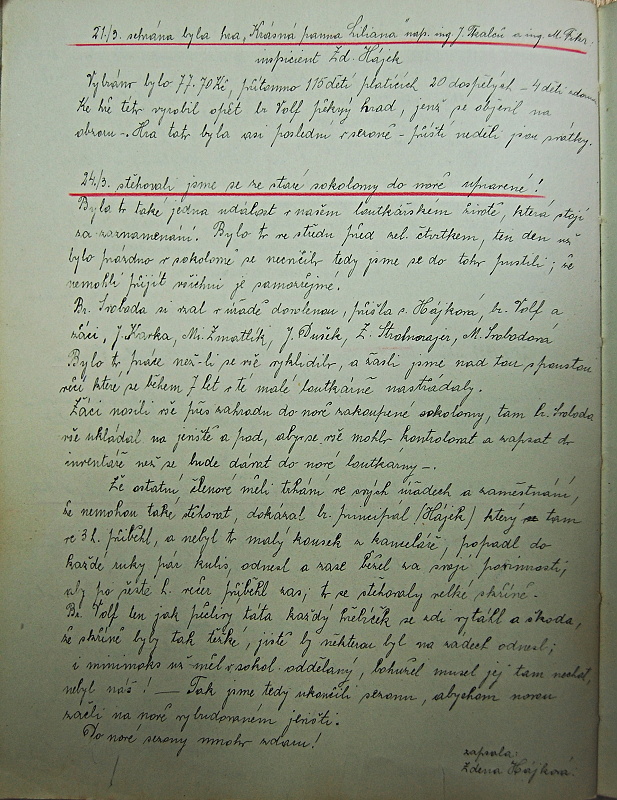 21./3. sehrána byla hra „Krásná panna Liliana" nap. ing J. Tkalců a ing. M. Fikr.
inspicient Zd. Hájek
Vybráno bylo 77.70 Kč, přítomno 115 dětí platících 20 dospělých – 4 děti zdarma
Ke hře této vyrobil opět br. Volf pěkný hrad, jenž se objevil na
obzoru –. Hra tato byla asi poslední v sezoně – příští neděli jsou svátky.
24./3. stěhovali jsme se ze staré sokolovny do nově upravené!
Byla to také jedna událost v našem loutkářském životě, která stojí
za zaznamenání. Bylo to ve středu před zel. čtvrtkem, ten den už
bylo prázdno v sokolovně se necvičilo tedy jsme se do toho pustili; že
nemohli přijít všichni je samozřejmé.
Br. Svoboda si vzal v úřadě dovolenou, přišla s. Hájková, br. Volf a
žáci, J. Karka, Mi. Zmatlík, J. Dušek, Z. Strohmajer, M. Svobodová
Bylo to práce než-li se vše vyklidilo, a žasli jsme nad tou spoustou
věcí které se během 7 let v té malé loutkárně nastřádaly.
Žáci nosili vše přes zahradu do nově zakoupené sokolovny, tam br. Svoboda
vše ukládal na jeviště a pod, aby se vše mohlo kontrolovat a zapsat do
inventáře než se bude dávat do nové loutkárny –.
Že ostatní členové měli trhání ve svých úřadech a zaměstnání,
že nemohou také stěhovat, dokázal br. principal (Hájek) který tam
ve 3 h. přiběhl, a nebyl to malý kousek z kanceláře, popadl do
každé ruky pár kulis, odnesl a zase běžel za svojí povinností,
aby po šesté h. večer přiběhl zas; to se stěhovaly velké skříně –
Br. Volf ten jak pečlivý táta každý hřebíček ze zdi vytáhl a škoda,
že skříně byly tak těžké, jistě by některou byl na zádech odnesl;
i minimaks už měl v sokol. oddělaný, bohužel musel jej tam nechat,
nebyl náš! — Tak jsme tedy ukončili sezonu, abychom novou
začli na nově vybudovaném jevišti.
Do nové sezony mnoho zdaru!
zapsala:
Zdena Hájková.